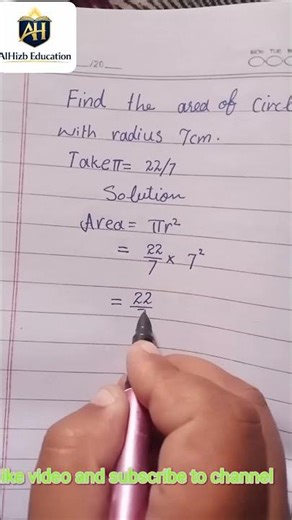 AH
AlHizb Education
/20
Find the area of Circl
with radius 7cm.
Take π = 22/7
Solution
Area = πr²
= 22/7 × 7²
= 22
like video and subscribe to channel